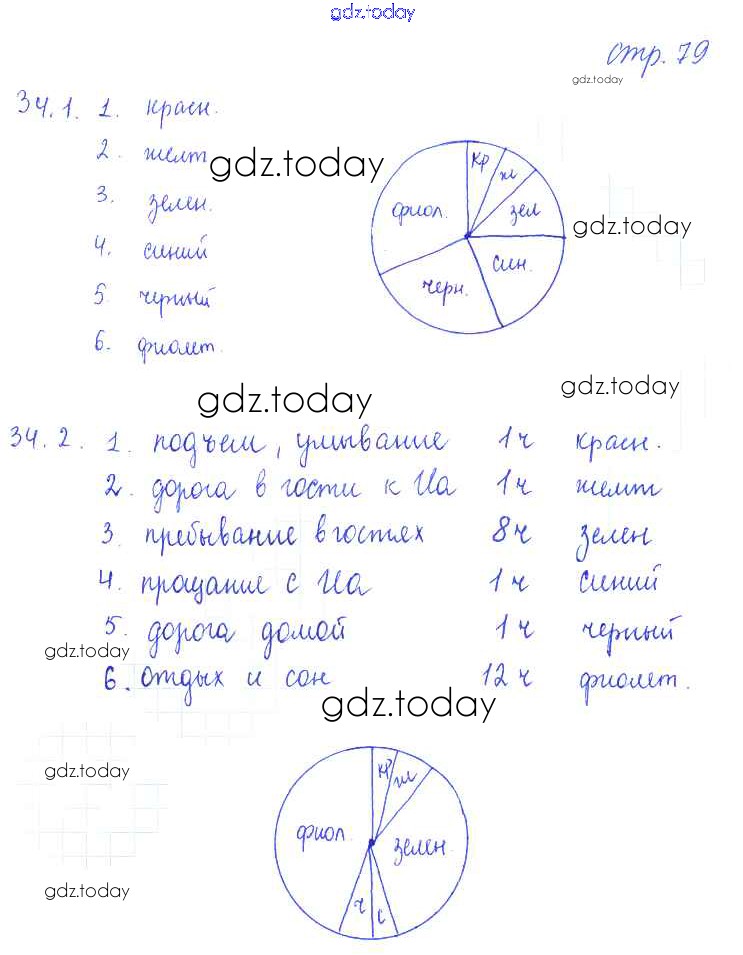 gdz.today
стр. 79
gdz.today
34.1. 1. красн.
2. желт
gdz.today
3. зелен.
4. синий
5. черный
6. фиолет.
кр
ж
зел
син.
черн.
фиол.
gdz.today
gdz.today
gdz.today
34.2. 1. подъем, умывание 1ч красн.
2. дорога в гости к Иа 1ч желт
3. пребывание в гостях 8ч зелен
4. прощание с Иа 1ч синий
5. дорога домой 1ч черный
gdz.today
6. отдых и сон 12ч фиолет.
gdz.today
gdz.today
кр
ж
фиол.
зелен.
ч
с
gdz.today